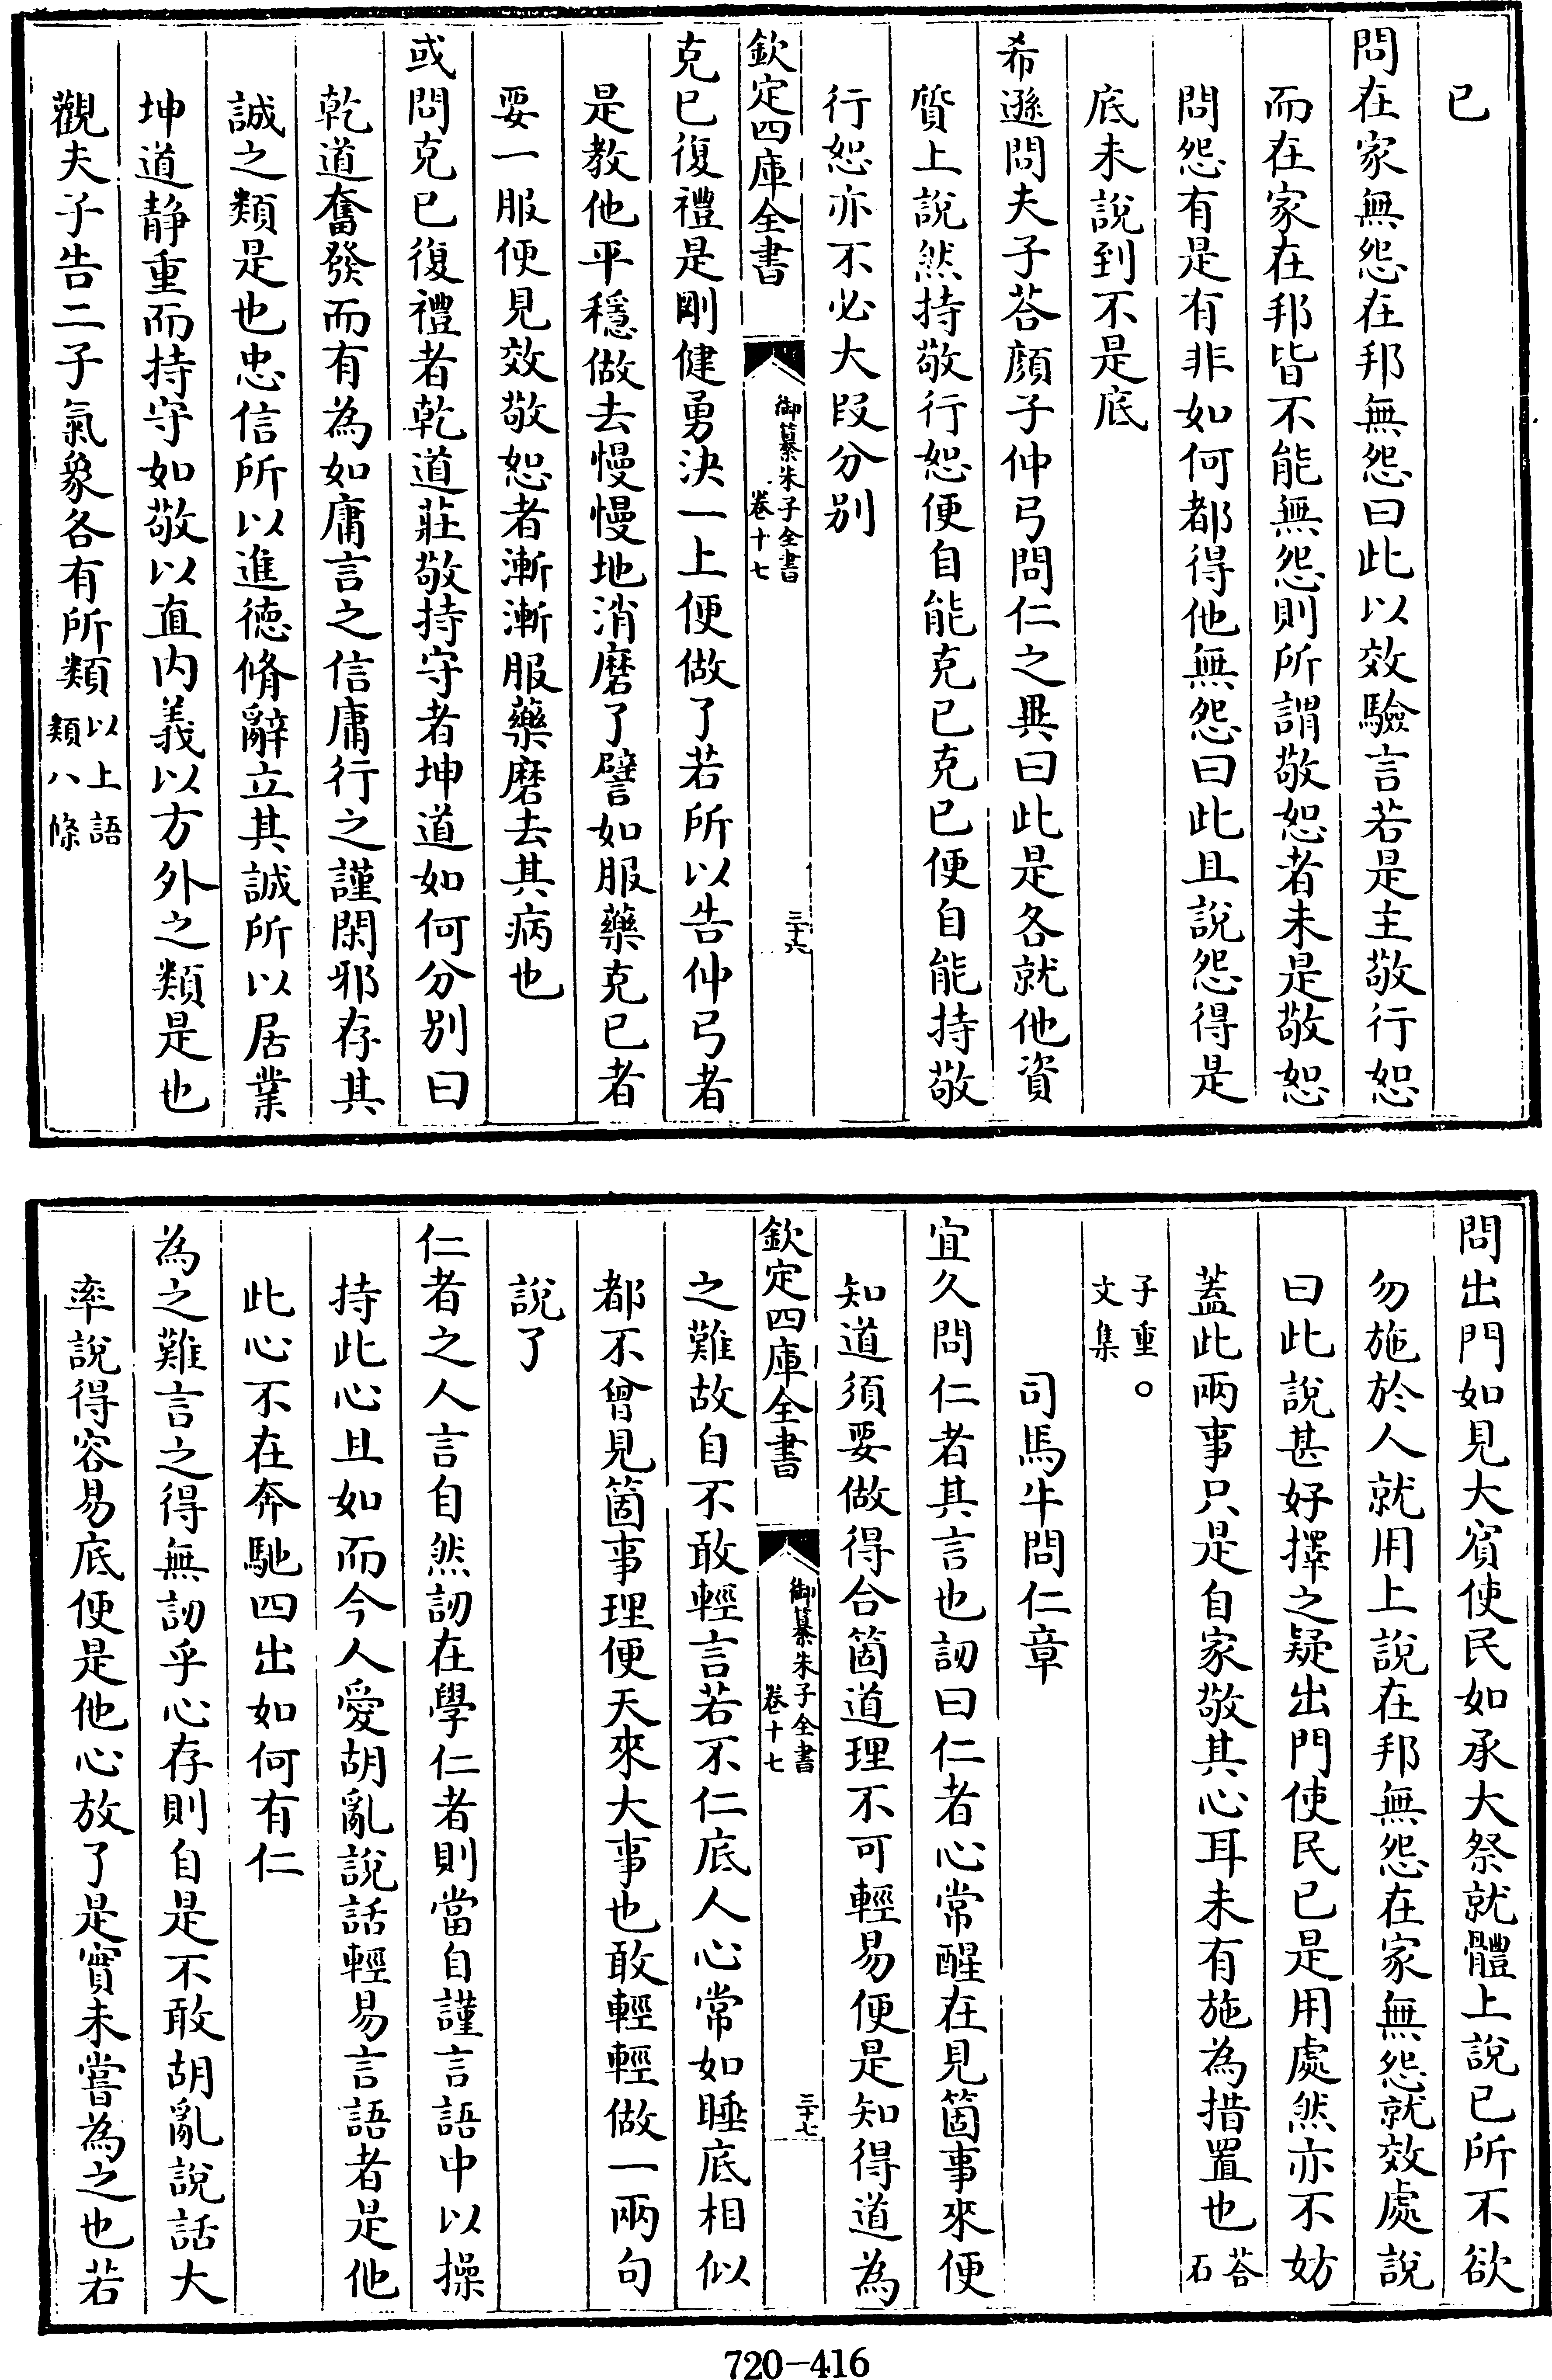 已
問在家無怨在邦無怨曰此以效驗言若是主敬行恕
而在家在邦皆不能無怨則所謂敬恕者未是敬恕
問怨有是有非如何都得他無怨曰此且說怨得是
底未說到不是底
希遜問夫子荅顔子仲弓問仁之異曰此是各就他資
質上說然持敬行恕便自能克己克己便自能持敬
行恕亦不必大段分别
欽定四庫全書
御纂朱子全書
卷十七
三十六
克已復禮是剛健勇決一上便做了若所以告仲弓者
是教他平穩做去慢慢地消磨了譬如服藥克已者
要一服便見效敬恕者漸漸服藥磨去其病也
或問克已復禮者乾道莊敬持守者坤道如何分别曰
乾道奮發而有為如庸言之信庸行之謹閑邪存其
誠之類是也忠信所以進德脩辭立其誠所以居業
坤道静重而持守如敬以直内義以方外之類是也
觀夫子告二子氣象各有所類以上語類八條
問出門如見大賓使民如承大祭就體上說已所不欲
勿施於人就用上說在邦無怨在家無怨就效處說
曰此說甚好擇之疑出門使民已是用處然亦不妨
蓋此兩事只是自家敬其心耳未有施為措置也荅石
子重。文集
司馬牛問仁章
宜久問仁者其言也訒曰仁者心常醒在見箇事來便
知道須要做得合箇道理不可輕易便是知得道為
欽定四庫全書
御纂朱子全書
卷十七
三十七
之難故自不敢輕言若不仁底人心常如睡底相似
都不曾見箇事理便天來大事也敢輕輕做一兩句
說了
仁者之人言自然訒在學仁者則當自謹言語中以操
持此心且如而今人愛胡亂說話輕易言語者是他
此心不在奔馳四出如何有仁
為之難言之得無訒乎心存則自是不敢胡亂說話大
率說得容易底便是他心放了是實未嘗為之也若
720-416